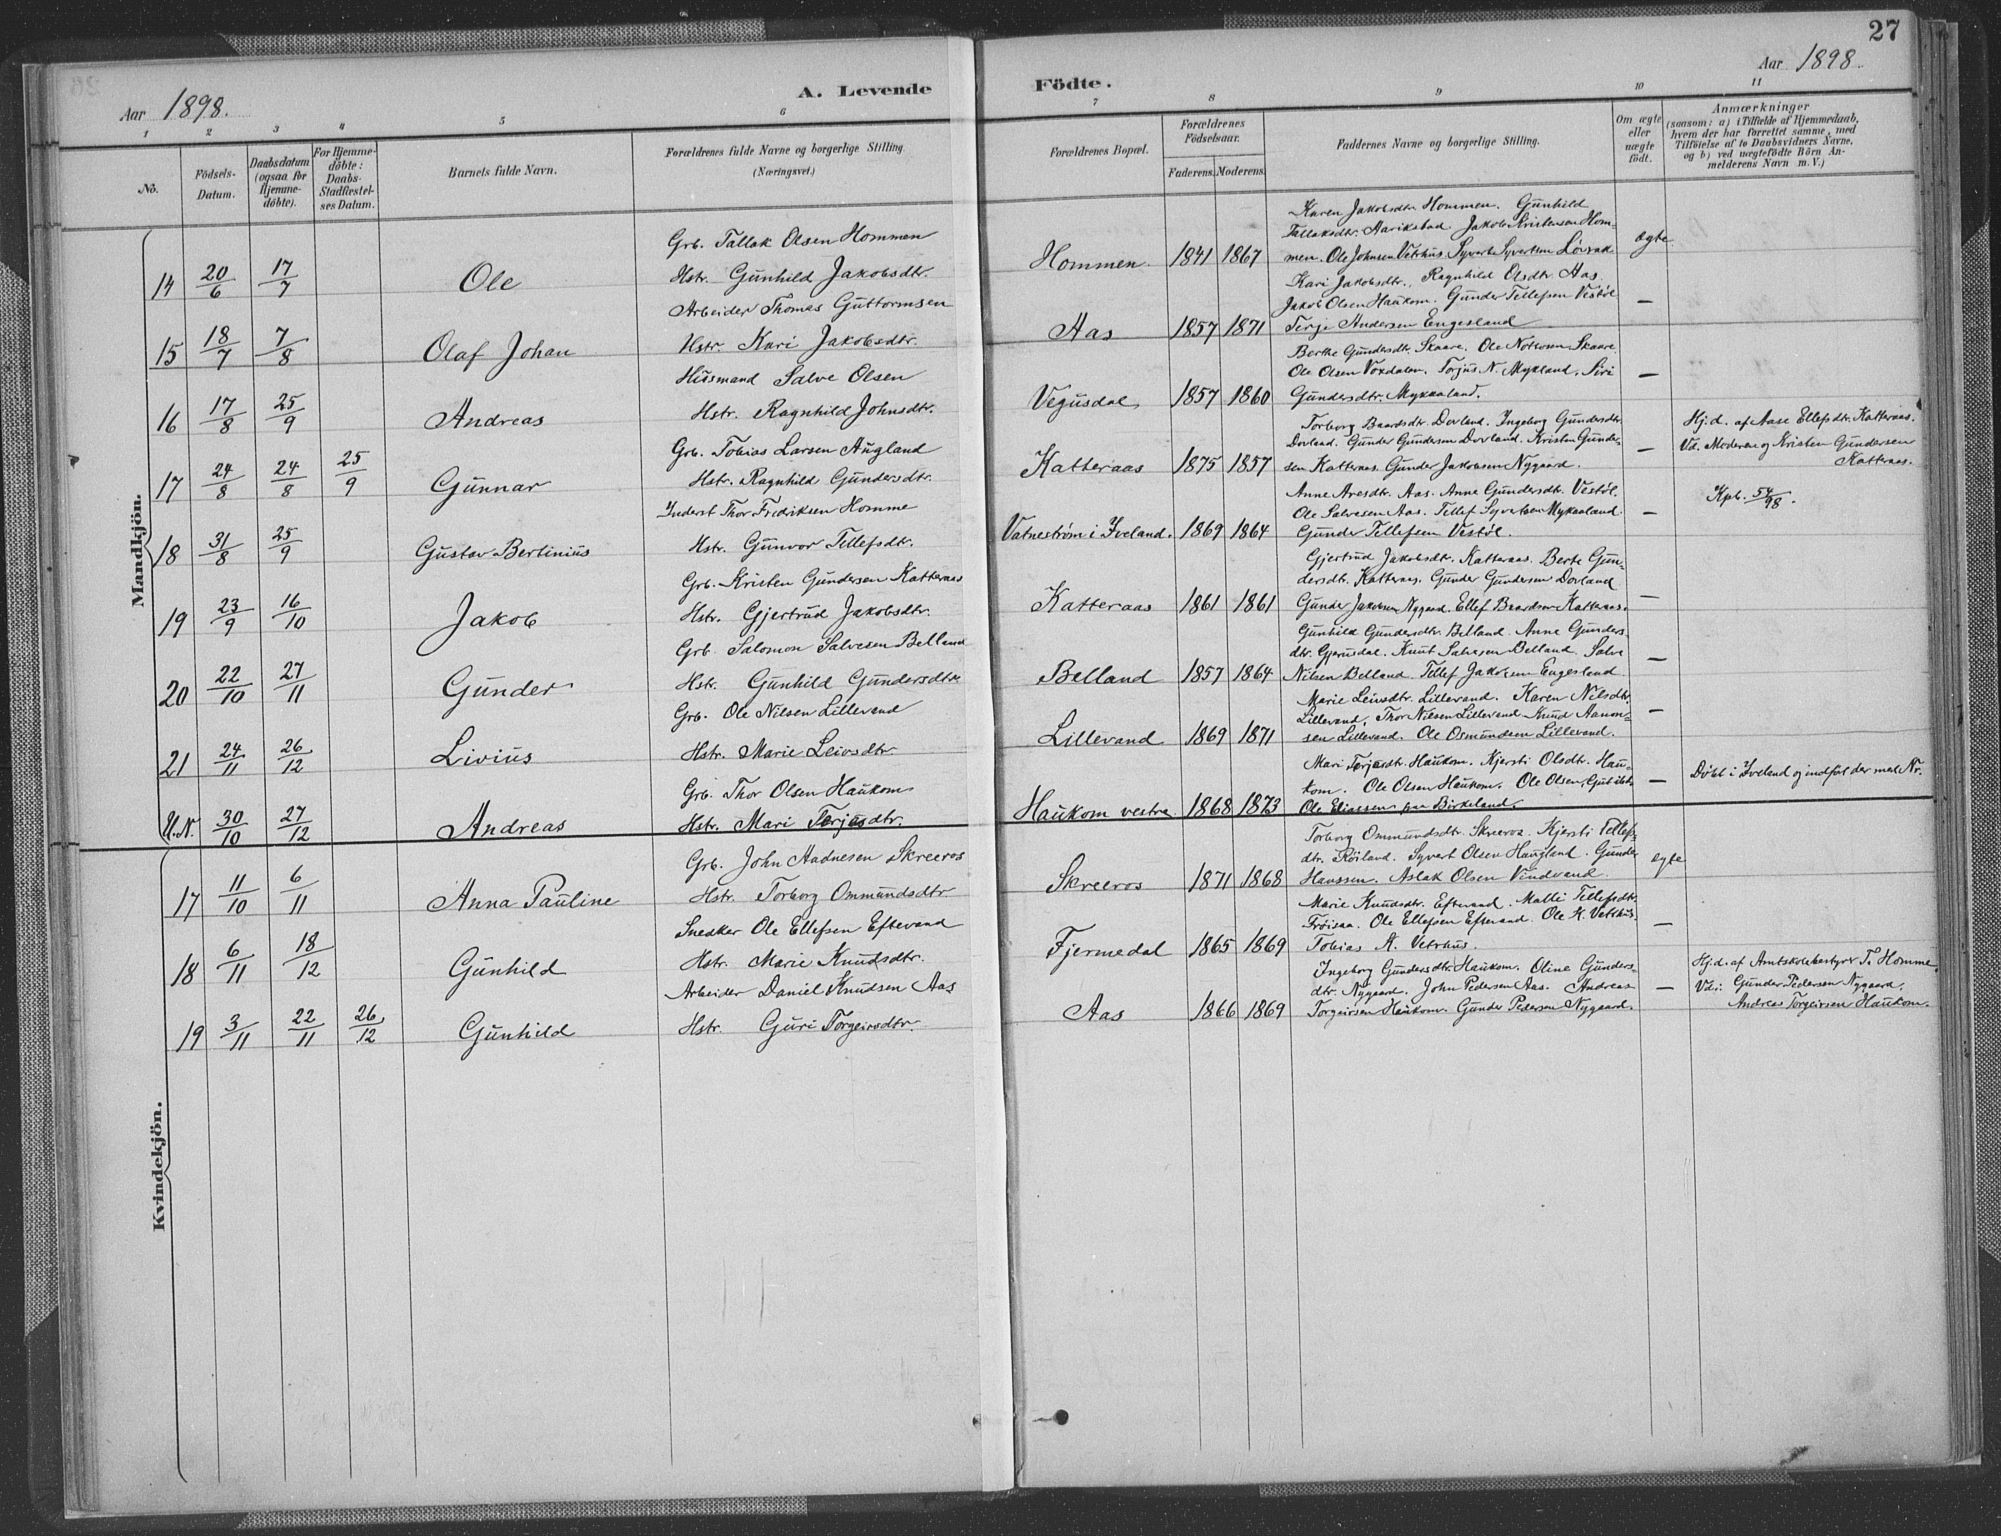 27
Aar 1898.
A. Levende
Födte.
Aar 1898.
1 2 3 4 5 6 7 8 9 10 11
No.
Födsels-Datum.
Daabsdatum (ogsaa for Hjemmedöbte).
For Hjemmedöbte: Daabs-Stadfæstelses Datum.
Barnets fulde Navn.
Forældrenes fulde Navne og borgerlige Stilling. (Næringsvei.)
Forældrenes Bopæl.
Forældrenes Födselsaar.
Faderens. Moderens.
Faddernes Navne og borgerlige Stilling.
Om ægte eller uægte födt.
Anmærkninger (saasom: a) i Tilfælde af Hjemmedaab, hvem der har forrettet samme, med Tilföielse af to Daabsvidners Navne, og b) ved uægtefödte Börn Anmelderens Navn m. V.)
Mandkjön.
14 20/6 17/7 Ole
Grb. Tallak Olsen Hommen
Hstr. Gunhild Jakobsdtr.
Hommen 1841 1867
Karen Jakobsdtr. Hommen. Gunhild
Tallaksdtr. Aarikstad Jakob Kristensen Hom-
men. Ole Johnsen Vetrhus. Syvert Syvertsen Løvrak
ægte
15 18/7 7/8 Olaf Johan
Arbeider Thomas Guttormsen
Hstr. Kari Jakobsdtr.
Aas 1857 1871
Kari Jakobsdtr., Ragnhild Olsdtr. Aas
Jakob Olsen Haukom. Gunder Tellefsen Vestöl
Terje Andersen Engesland
—
16 17/8 25/9 Andreas
Husmand Salve Olsen
Hstr. Ragnhild Johnsdtr.
Vegusdal 1857 1860
Berthe Gundersdtr. Skaare. Ole Notosen Skaare.
Ole Olsen Voxdalen. Torjus N. Mykland. Siri
Gundersdtr. Mykkaland.
—
17 24/8 24/8 25/9 Gunnar
Grb. Tobias Larsen Augland
Hstr. Ragnhild Gundersdtr.
Katteraas 1875 1857
Torborg Baardsdtr. Dovland. Ingeborg Gundersdtr.
Dovland. Gunder Gundersen Dovland. Kristen Gunder-
sen Katteraas. Gunder Jakobsen Nygaard.
—
Hj.d. af Aase Ellefsdtr. Katteraas.
Vd. Moderen og Kristen Gundersen
Katteraas.
18 31/8 25/9 Gustav Bertinius
Inderst Thor Fredriksen Homme
Hstr. Gunvor Tellefsdtr.
Vatneström i Iveland. 1869 1864
Anne Aresdtr. Aas. Anne Gundersdtr. Vestöl.
Ole Salvesen Aas. Tellef Syvertsen Mykaaland
Gunder Tellefsen Vestöl.
—
Kpb. 54/98.
19 23/9 16/10 Jakob
Grb. Kristen Gundersen Katteraas
Hstr. Gjertrud Jakobsdtr.
Katteraas 1861 1861
Gjertrud Jakobsdtr. Katteraas. Berte Gun-
dersdtr. Katteraas. Gunder Gundersen Dovland
Gunder Jakobsen Nygaard. Ellef Baardsen Katteraas.
—
20 22/10 27/11 Gunder
Grb. Salomon Salvesen Belland
Hstr. Gunhild Gundersdtr.
Belland 1857 1864
Gunhild Gundersdtr. Belland. Anne Gunders-
dtr. Gjerusdal. Knut Salvesen Belland. Salve
Nilsen Belland. Tellef Jakobsen Engesland
—
21 24/11 26/12 Livius
Grb. Ole Nilsen Lillevand
Hstr. Marie Leivsdtr.
Lillevand 1869 1871
Marie Leivsdtr. Lillevand. Karen Nilsdtr.
Lillevand. Thor Nilsen Lillevand Knud Aanon-
sen Lillevand. Ole Osmundsen Lillevand.
—
U.N. 30/10 27/12 Andreas
Grb. Thor Olsen Haukom
Hstr. Mari Terjesdtr.
Haukom vestre 1868 1873
Mari Terjesdtr. Haukom. Kjersti Olsdtr. Hau-
kom. Ole Olsen Haukom. Ole Olsen
Ole Eliassen paa Birkeland.
—
Döbt i Iveland og indført der med Nr.
Kvindekjön.
17 11/10 6/11 Anna Pauline
Grb. John Aadnesen Skreeros
Hstr. Torborg Ommundsdtr
Skreeros 1871 1868
Torborg Ommundsdtr. Skreeros. Kjersti Tellefs-
dtr. Röiland. Syvert Olsen Haugland. Gunder
Hanssen. Aslak Olsen Vindvand.
ægte
18 6/11 18/12 Gunhild
Snedker Ole Ellefsen Eftevand
Hstr. Marie Knudsdtr.
Fjermedal 1865 1869
Marie Knudsdtr. Eftevand. Malli Tellefsdtr.
Fröisaa. Ole Ellefsen Eftevand. Ole K. Vetrhus.
Tobias A. Vetrhus.
—
19 3/11 22/11 26/12 Gunhild
Arbeider Daniel Knudsen Aas
Hstr. Guri Torgeirsdtr.
Aas 1866 1869
Ingeborg Gundersdtr. Haukom. Oline Gunders-
dtr. Nygaard. John Pedersen Aas. Andreas
Torgeirsen Haukom. Gunder Pedersen Nygaard.
—
Hj.d. af Amtskolebestyrer T. Homme.
Vd: Gunder Pedersen Nygaard,
Andreas Torgeirsen Haukom.